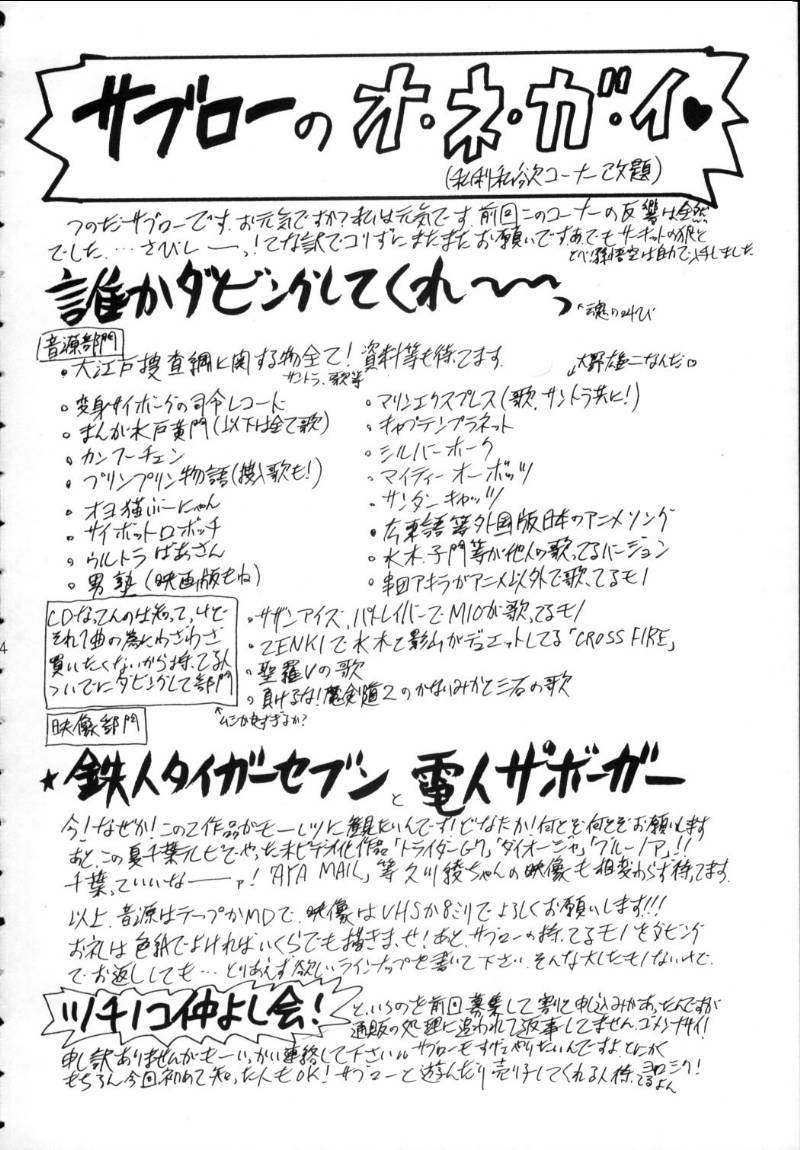 サブローの オ・ネ・ガ・イ♥
(私利私欲コーナー改題)
つのだサブローです。お元気ですか?私は元気です。前回このコーナーの反響は全然
でした…さびしーーっ!てな訳でコリずにまたまたお願いです。あ、でもサーキットの狼と
とべ!孫悟空は自力で入手しました。
誰かダビングしてくれ〜〜〜っ
↑魂の叫び
音源部門
・大江戸捜査網に関する物全て!資料等も待ってます。
サントラ、歌等
↓大野雄二なんだ♡
・変身サイボーグの司令レコード
・まんが水戸黄門(以下は全て歌)
・カンフーチェン
・プリンプリン物語(挿入歌も!)
・オヨ猫ぶーにゃん
・サイボットロボッチ
・ウルトラばあさん
・男塾(映画版もね)
・マリンエクスプレス(歌、サントラ共に!)
・キャプテンプラネット
・シルバーホーク
・マイティーオーボッツ
・サンダーキャッツ
・広東語等外国版日本のアニメソング
・水木、子門等が他人の歌ってるバージョン
・串田アキラがアニメ以外で歌ってるモノ
CDなってんのは知ってっけど
それ1曲の為にわざわざ
買いたくないから持ってる人
ついでにダビングして部門
↑ムシが良すぎるか?
・サザンアイズ、パトレイバーでMIOが歌ってるモノ
・ZENKIで水木と影山がデュエットしてる「CROSS FIRE」
・聖羅Vの歌
・負けるな!魔剣道2のかないみかと三石の歌
映像部門
★鉄人タイガーセブンと電人ザボーガー
今!なぜか!この2作品がモーレツに観たいんです!どなたか!何とぞ何とぞお願いします
あと、この夏千葉テレビでやった未ビデオ化作品「トライダーG7」「ダイオージャ」「グルーノア」!!
千葉っていいなーーァ!「AYA MAIL」等久川綾ちゃんの映像も相変わらず待ってます。
以上、音源はテープかMDで、映像はVHSか8ミリでよろしくお願いします!!!
お礼は色紙でよければいくらでも描きまっせ!あと、サブローの持ってるモノをダビング
でお返ししても…とりあえず欲しいラインナップを書いて下さい。そんな大したモノないけど。
ツチノコ仲よし会!
というのを前回募集して割と申込みがあったんですが
通販の処理に追われて返事してません。ゴメンナサイ!
申し訳ありませんがもーいっかい連絡して下さい。サブローもすげェやりたいんですよ、とにかく
もちろん今回初めて知った人もOK!サブローと遊んだり売り子してくれる人待ってるよん
ヨロシク!
4